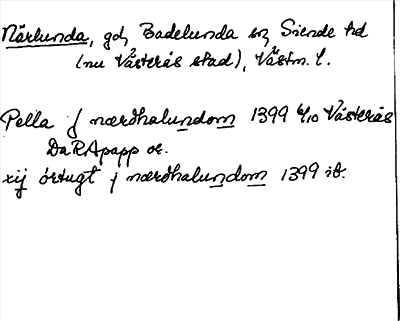 Närlunda, gd, Badelunda sn, Siende hd
(nu Västerås stad), Västm. l.
Pella j nærdhalundom 1399 6/10 Västerås
DaRApapp or.
xij ørtugt j nærdhalundom 1399 ib.